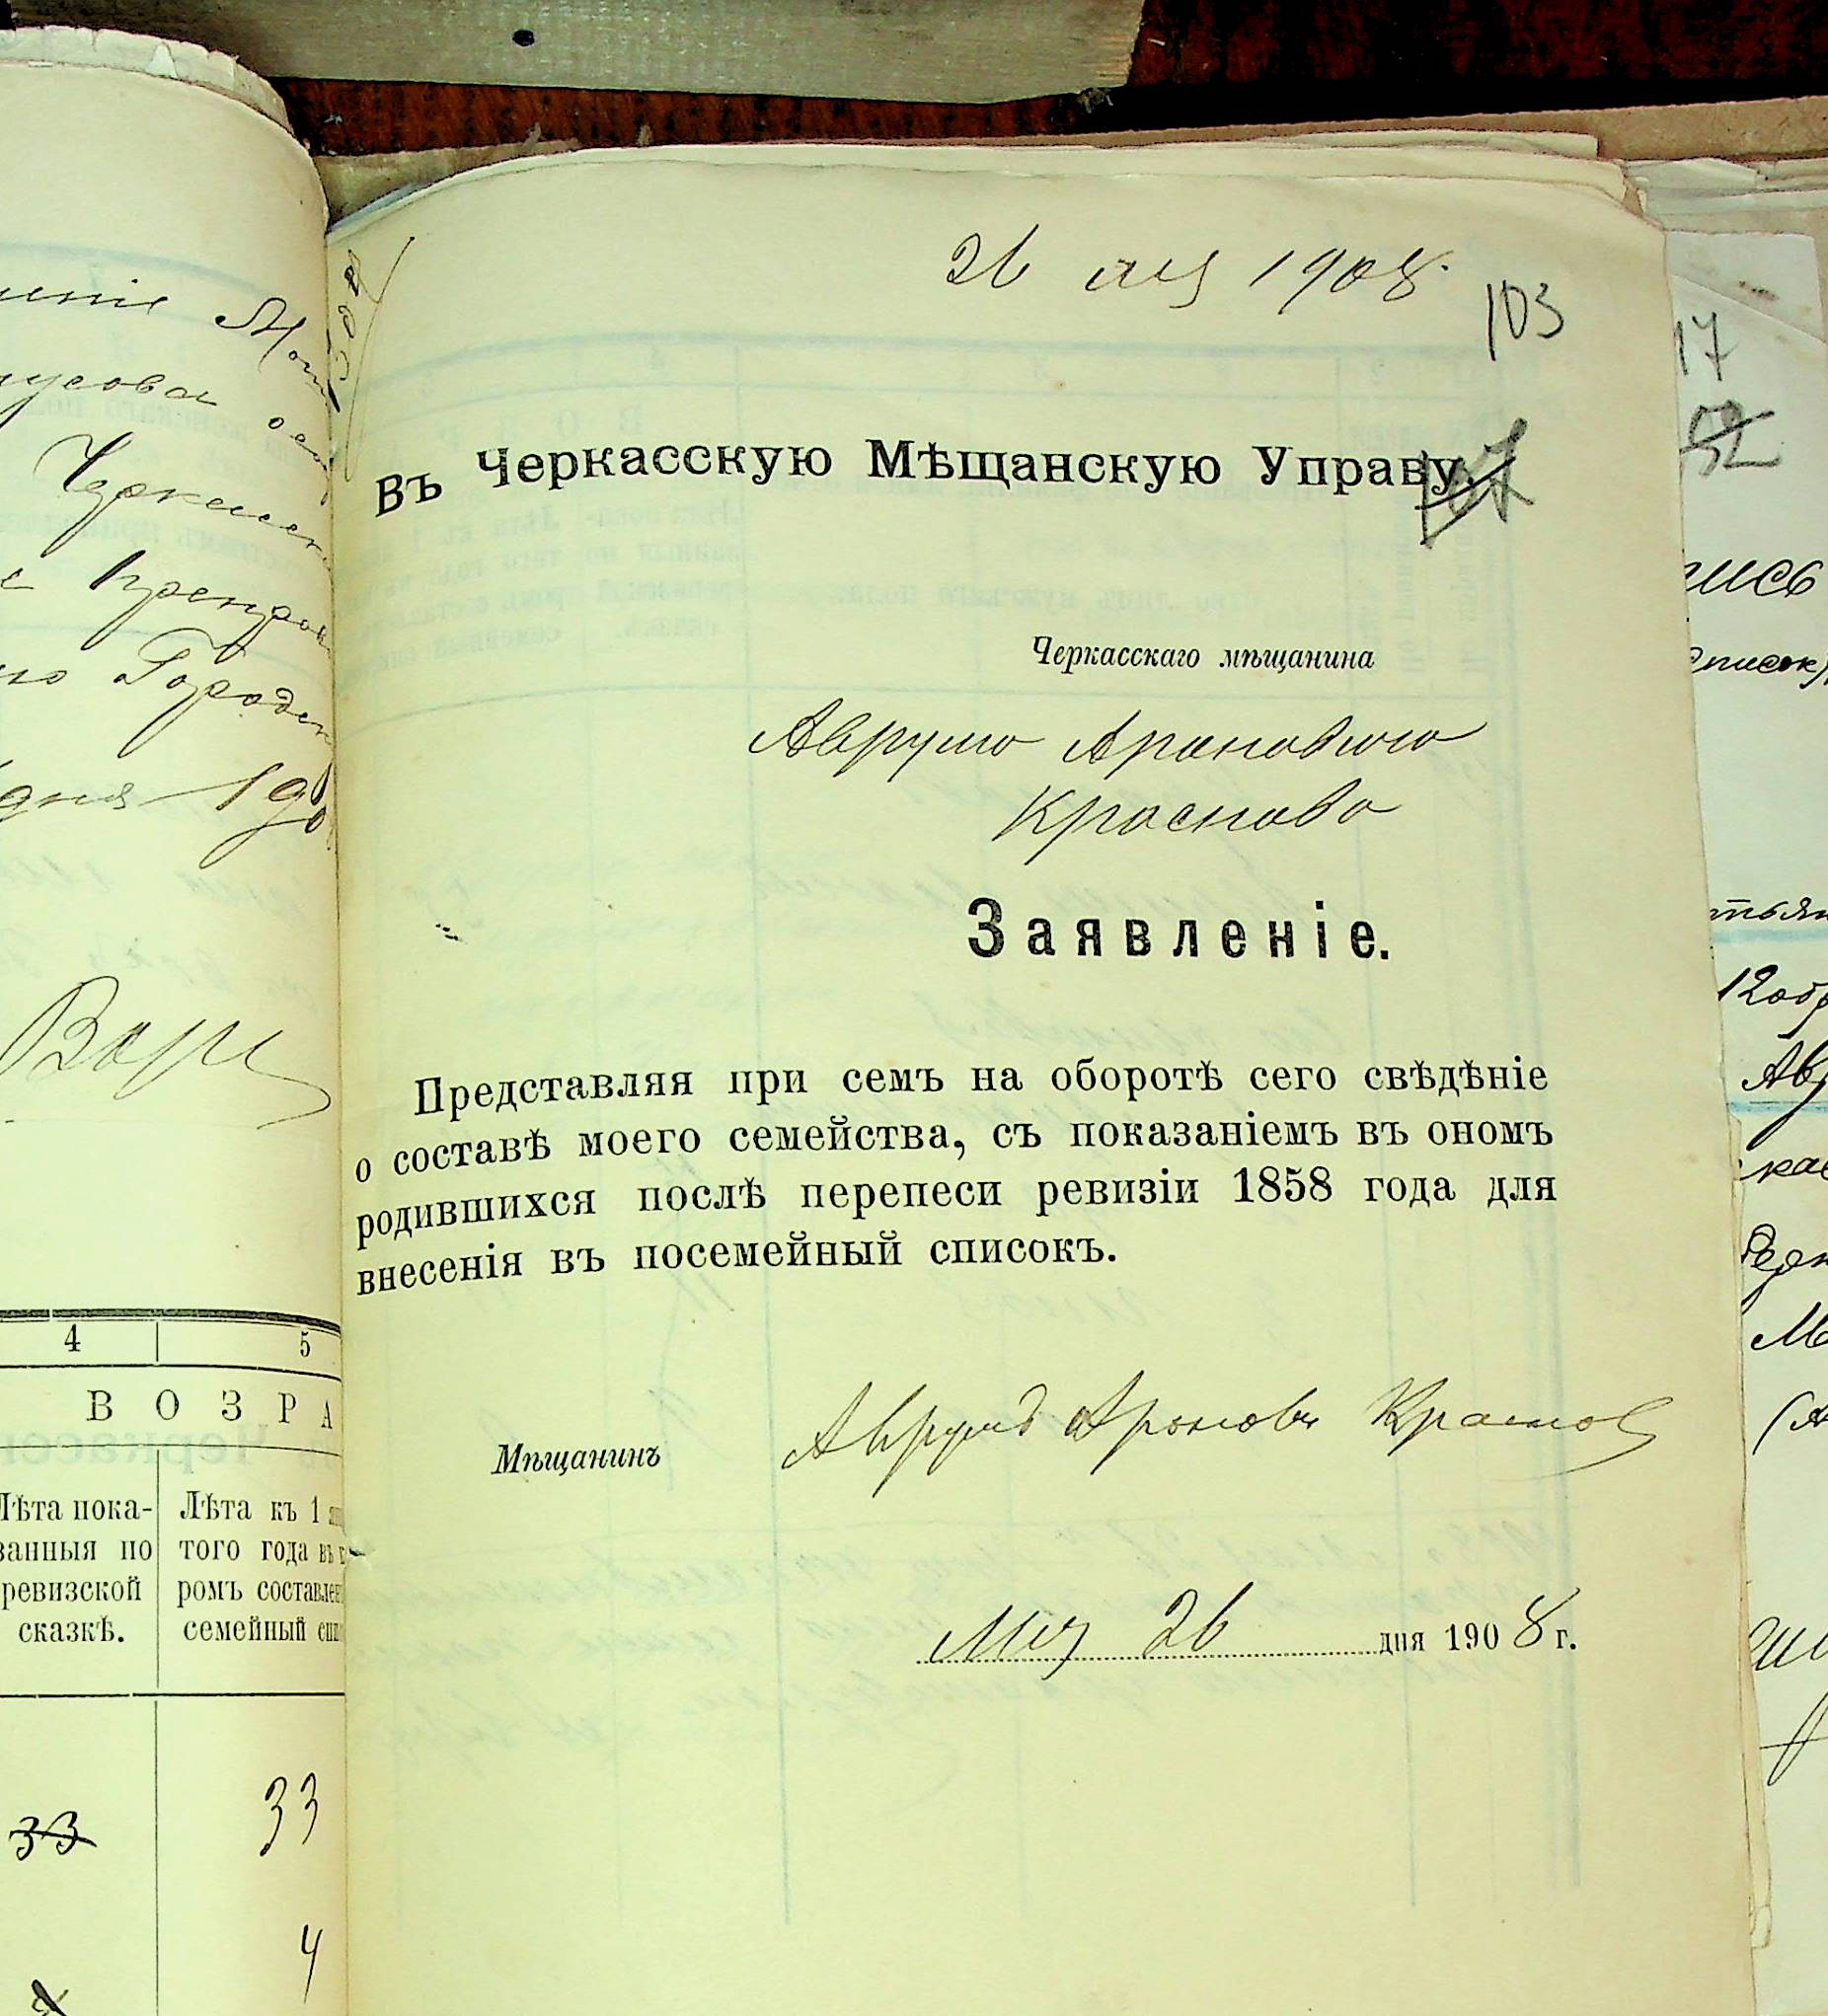 26 мая 1908.
103
Въ Черкасскую Мѣщанскую Управу.
107
Черкасскаго мѣщанина
Аврума Ароновича
Краснова
Заявленіе.
Представляя при семъ на оборотѣ сего свѣдѣніе
о составѣ моего семейства, съ показаніемъ въ ономъ
родившихся послѣ перепеси ревизіи 1858 года для
внесенія въ посемейный списокъ.
Мѣщанинъ Аврумъ Ароновъ Краснов
Мая 26 дня 1908 г.
4 5
ВОЗРА
Лѣта пока-
занныя по
ревизской
сказкѣ.
Лѣта къ 1
того года въ
ромъ составлен
семейный спи
33 33
4
17
52